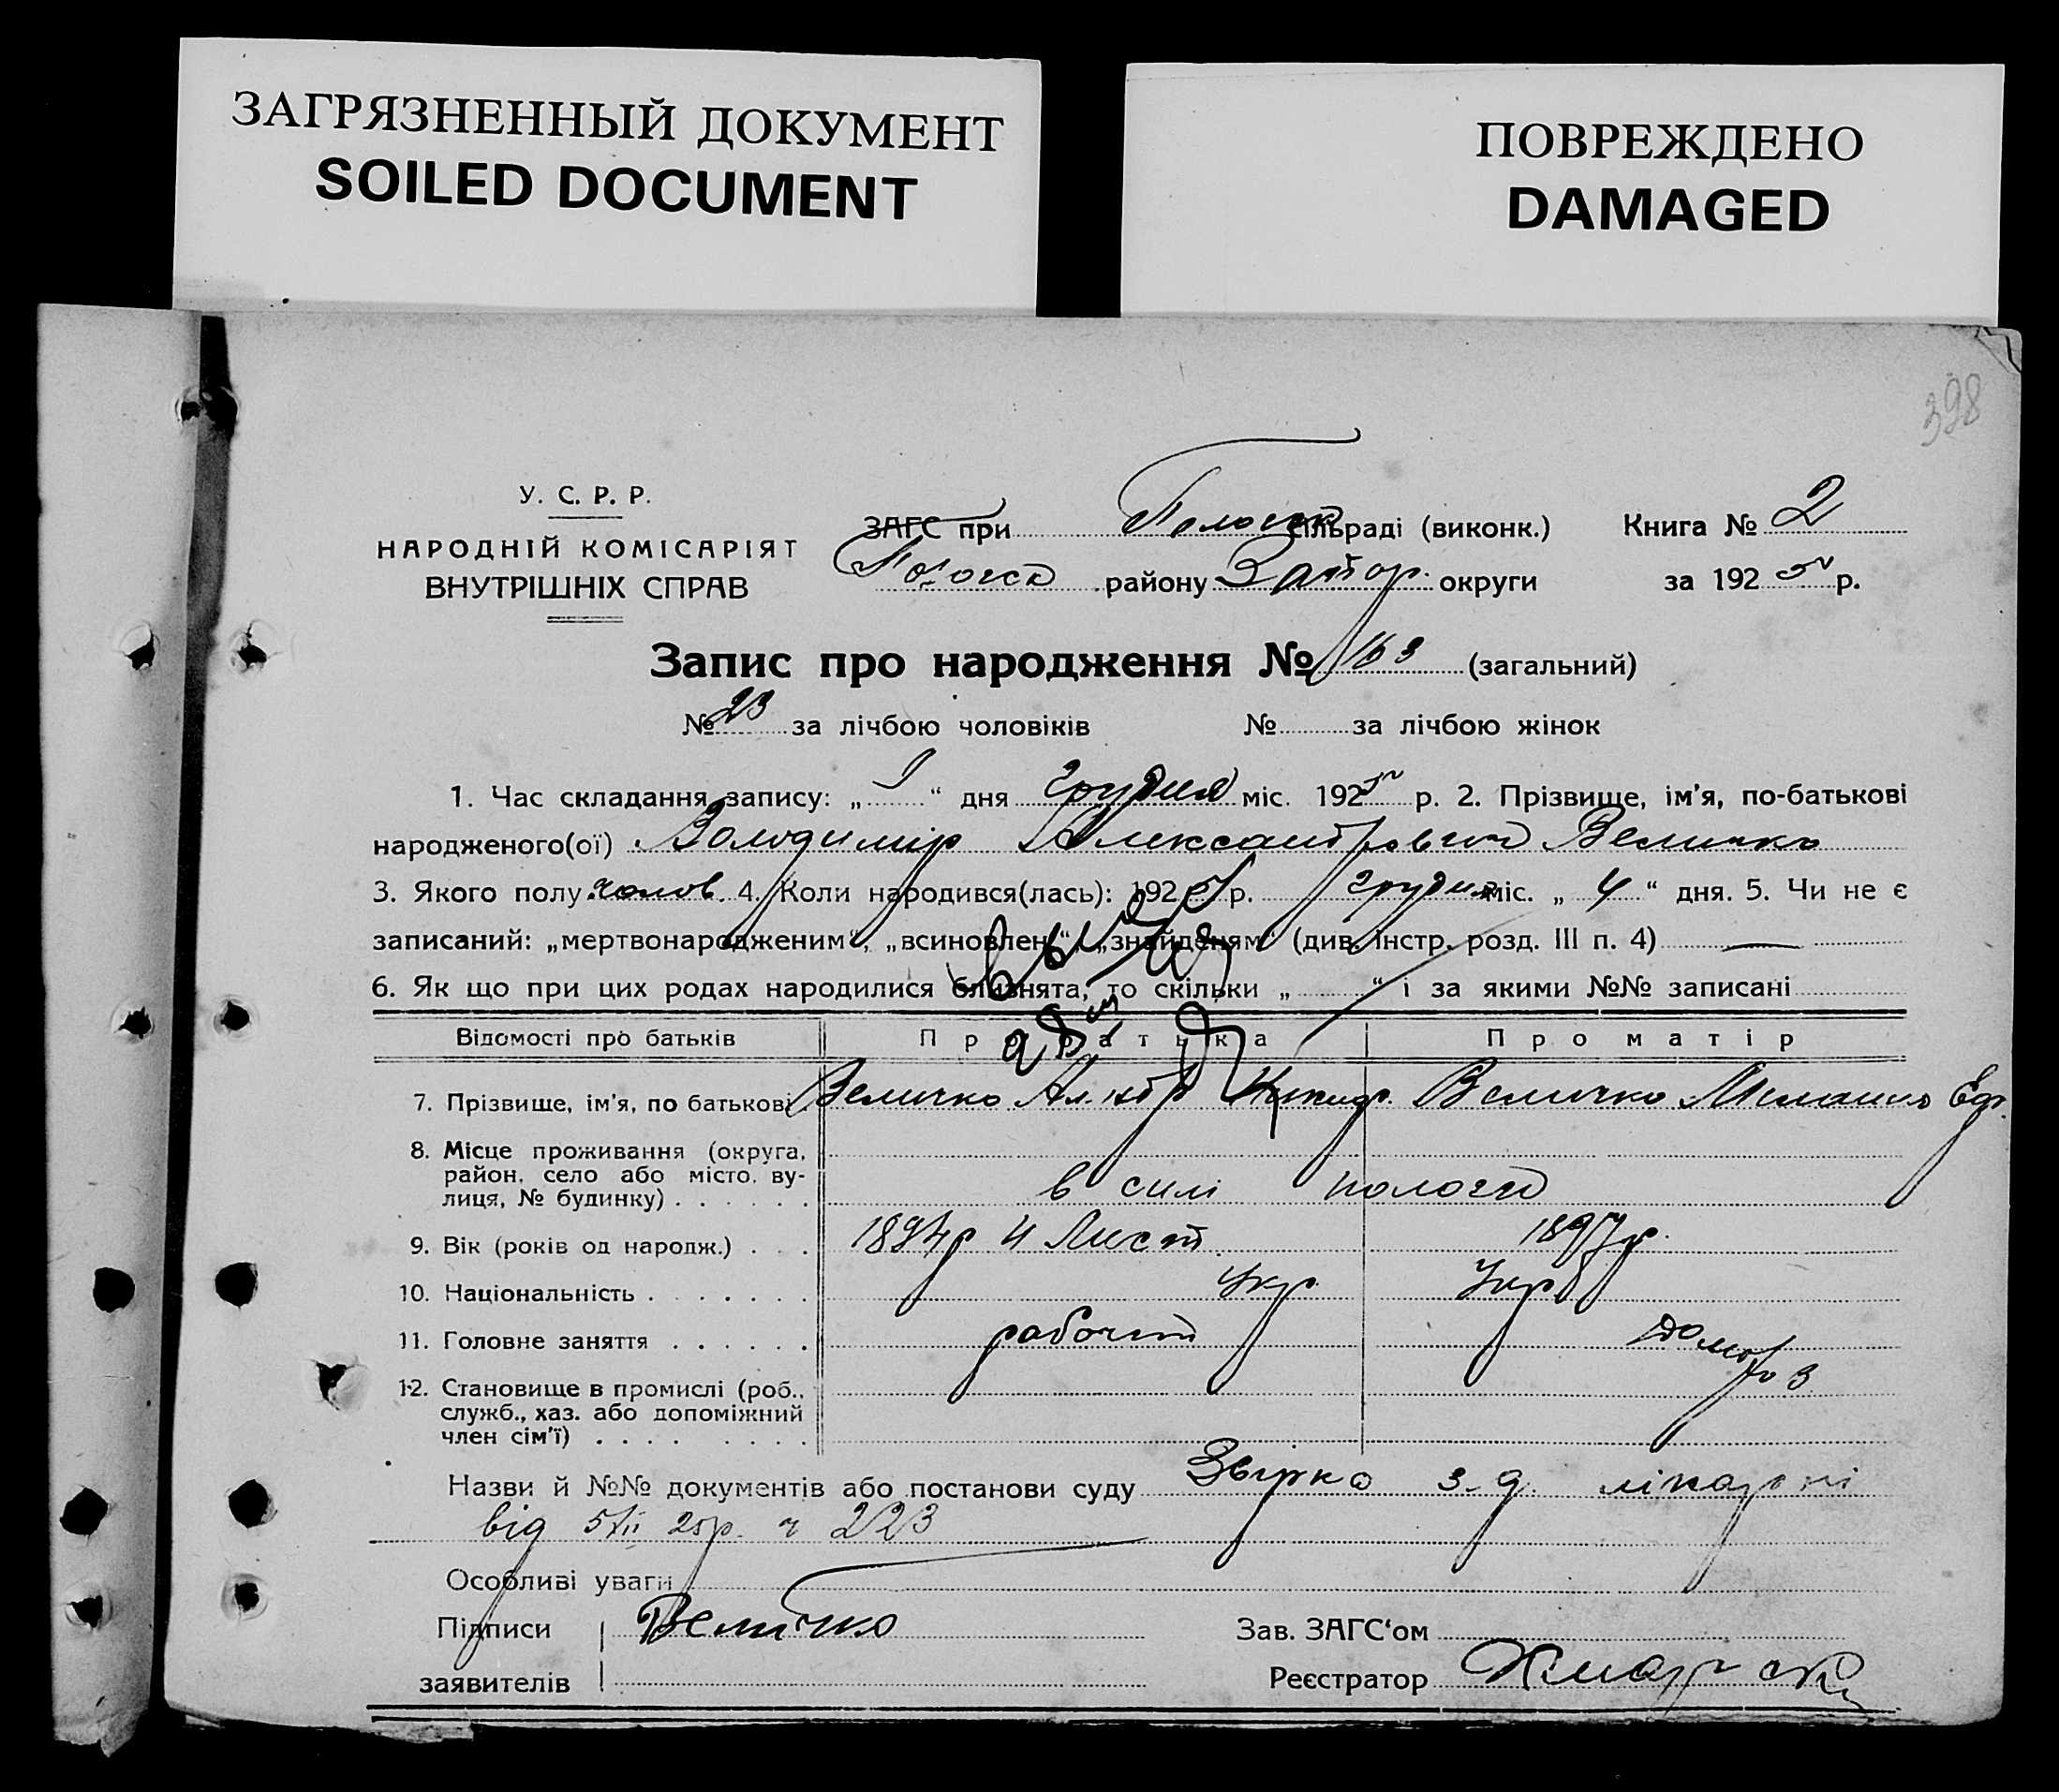 ЗАГРЯЗНЕННЫЙ ДОКУМЕНТ
SOILED DOCUMENT
ПОВРЕЖДЕНО
DAMAGED
398
У. С. Р. Р.
НАРОДНІЙ КОМІСАРІЯТ
ВНУТРІШНІХ СПРАВ
ЗАГС при сільраді (виконк.)
району Запор. округи
Книга № 2
за 1925 р.
Запис про народження № 163 (загальний)
№ 23 за лічбою чоловіків № за лічбою жінок
1. Час складання запису: „ “ дня Грудня міс. 1925 р. 2. Прізвище, ім'я, по-батькові
народженого(ої) Володимір Александрович Величко
3. Якого полу чолов. 4. Коли народився(лась): 1925 р. грудня міс. „ 4 “ дня. 5. Чи не є
записаний: „мертвонародженим“, „всиновлен.“, „знайденям“ (див. інстр. розд. III п. 4) —
6. Як що при цих родах народилися близнята, то скільки „ “ і за якими №№ записані
Відомості про батьків Про батька Про матір
7. Прізвище, ім'я, по батькові Величко Ал-др Никиф. Величко Мелания Еф.
8. Місце проживання (округа,
район, село або місто, ву-
лиця, № будинку) в силі пологи
9. Вік (років од народж.) 4 Лист. 1897 р.
10. Національність Укр Укр
11. Головне заняття рабочий
12. Становище в промислі (роб.,
служб., хаз. або допоміжний
член сім'ї)
Назви й №№ документів або постанови суду з-д. лікарні
від 5/XII 25р. ч 223
Особливі уваги
Підписи Величко Зав. ЗАГС'ом
заявителів Реєстратор